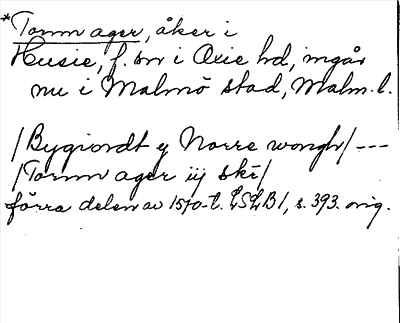 *Tornn ager, åker i
Husie, f. sn i Oxie hd, ingår
nu i Malmö stad, Malm. l.
/Bygiordt y Norre wongh/ ---
/Tornn ager iij skr/
förra delen av 1570-t. LSLB1, s. 393. orig.